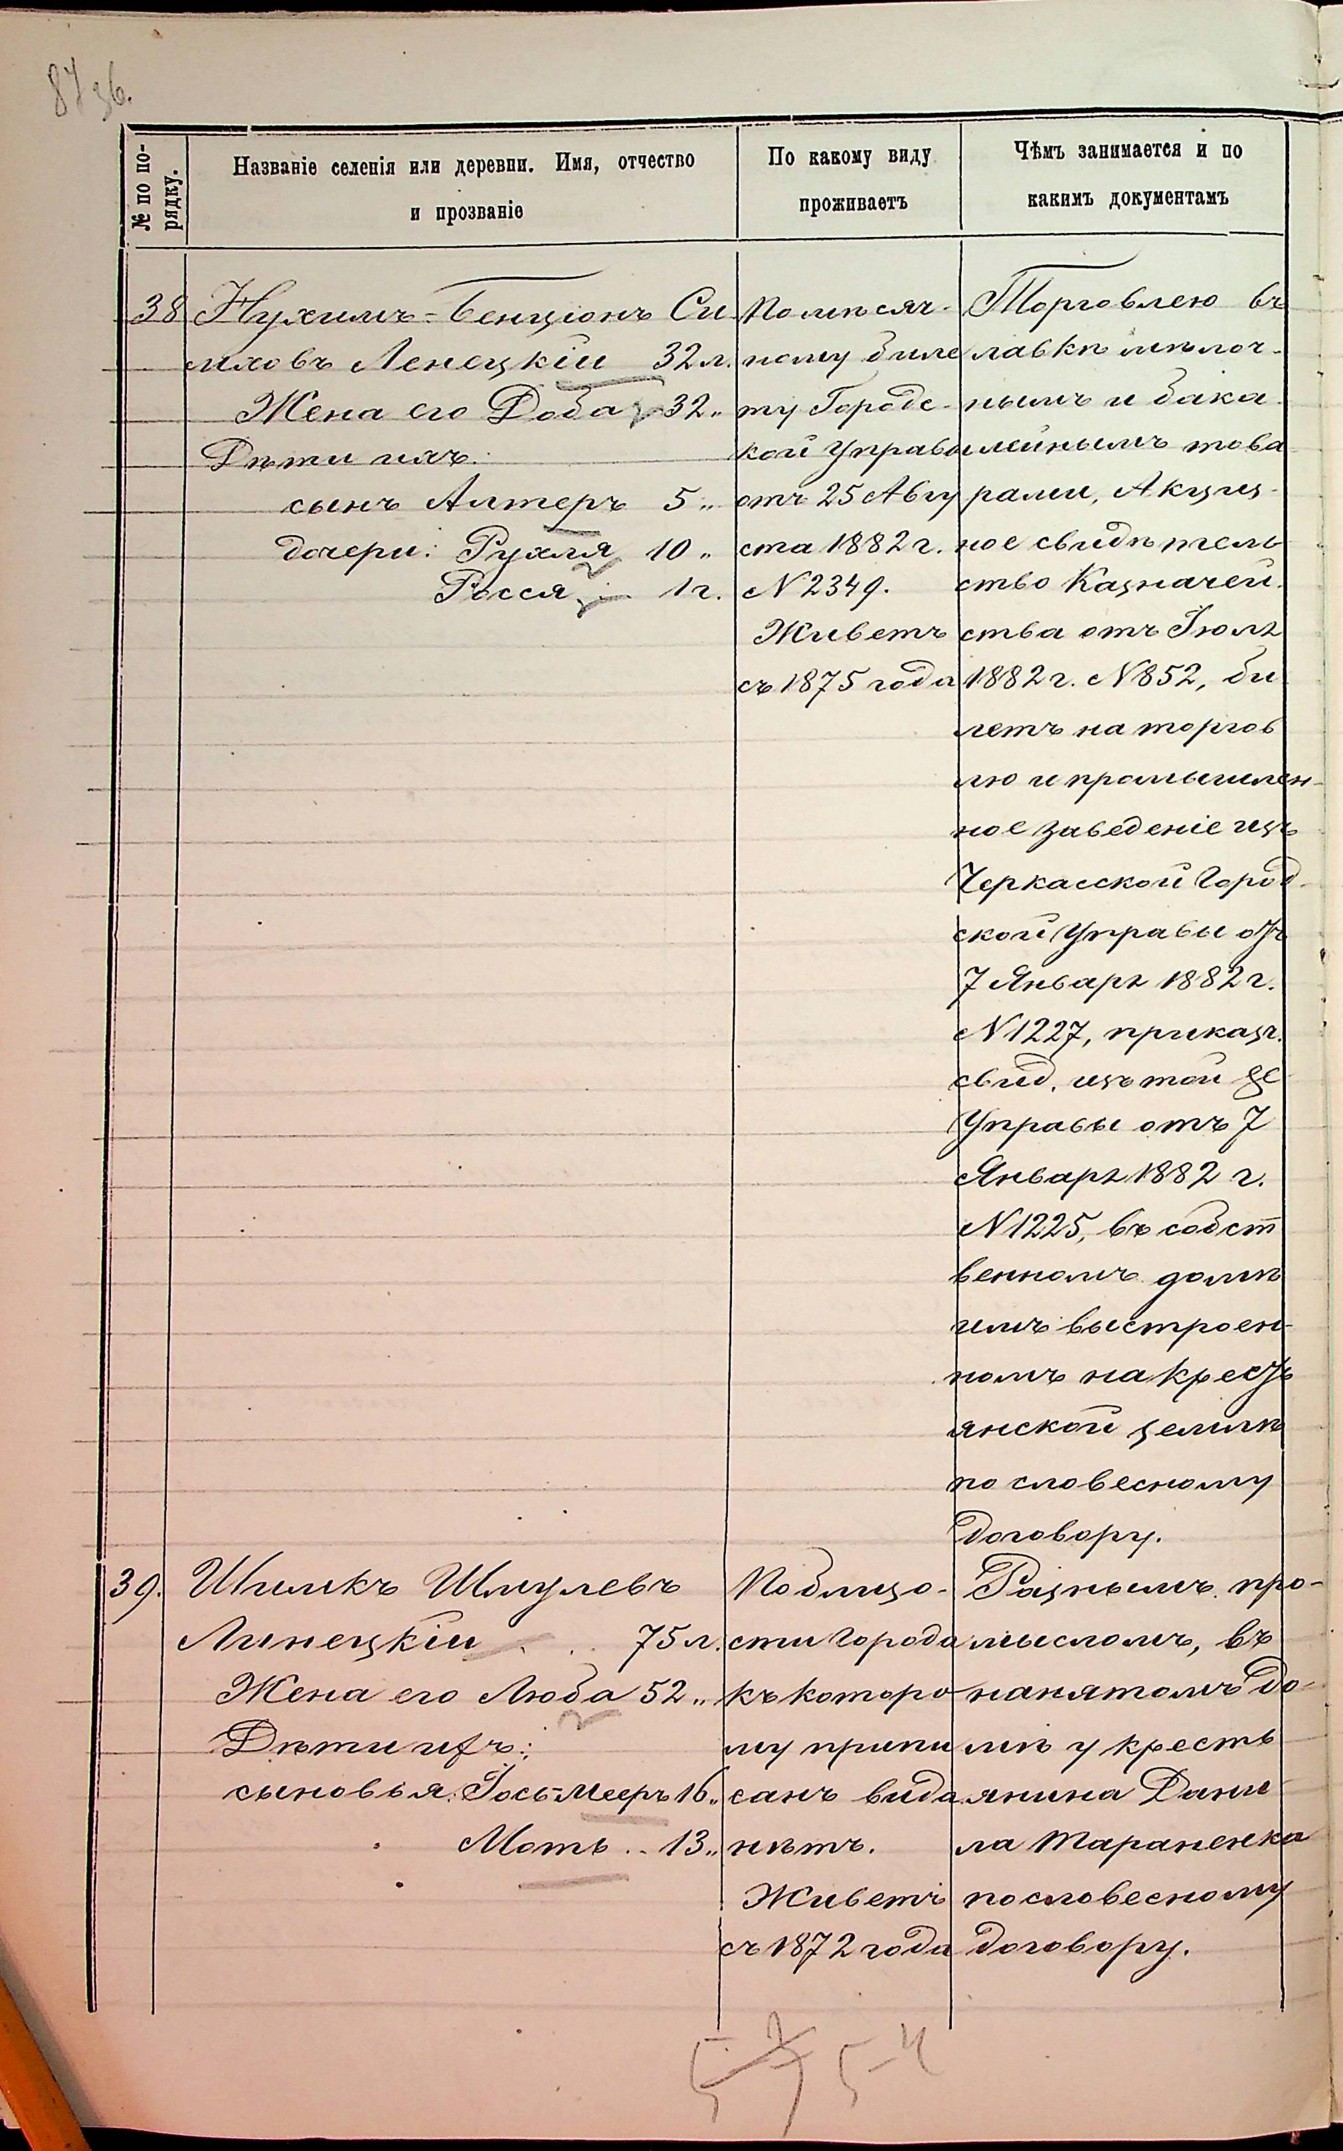 87 зб.
№ по по-
рядку.
Названіе селенія или деревни. Имя, отчество
и прозваніе
По какому виду
проживаетъ
Чѣмъ занимается и по
какимъ документамъ
38 Нухимъ-Бенціонъ Си
мховъ Ленецкій 32 л.
Жена его Доба 32 "
Дѣти ихъ:
сынъ Алтеръ 5 "
дочери: Рухля 10 "
Росся 1 г.
По мѣсяч-
ному биле
ту Городс-
кой Управы
отъ 25 Авгу
ста 1882 г.
N 2349.
Живетъ
съ 1875 года
Торговлею въ
лавкѣ мѣлоч-
нымъ и бака-
лейнымъ това
рами, Акциз-
ное свидѣтель
ство Казначей-
ства отъ Іюля
1882 г. N 852, би
летъ на торгов
лю и промышлен-
ное заведеніе изъ
Черкасской Город-
ской Управы отъ
7 Января 1882 г.
N 1227, приказч.
свид. изъ той же
Управы отъ 7
Января 1882 г.
N 1225, въ собст
венномъ домѣ
имъ выстроен-
номъ на крестъ
янской землѣ
по словесному
договору.
39. Шимкъ Шмулевъ
Линецкій . . 75 л.
Жена его Люба 52 "
Дѣти ихъ:
сыновья: Іось-Мееръ 16 "
Моть .. 13 "
По близо-
сти города
къ которо
му припи
санъ вида
нѣтъ.
Живетъ
съ 1872 года
Разнымъ про-
мысломъ, въ
нанятомъ до-
мѣ у кресть
янина Дани
ла Тараненка
по словесному
договору.
5-4